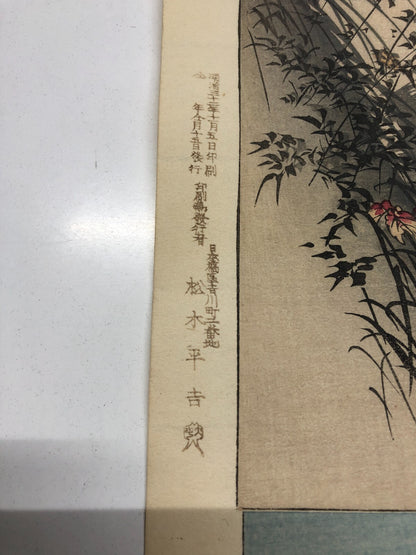 明治三十二年十月五日印刷
仝年仝月十五日發行
印刷兼發行者
日本橋區吉川町二番地
松木平吉